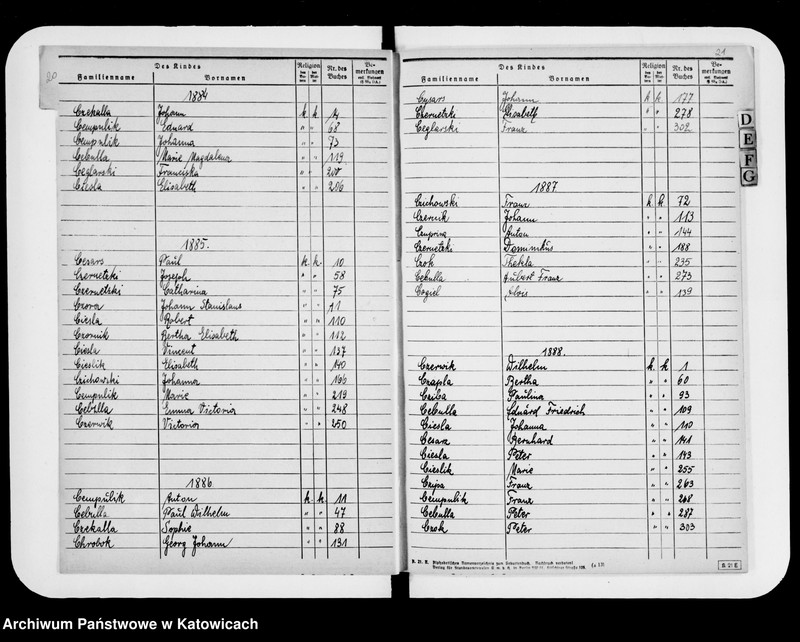 20
Des Kindes Religion Nr. des Buches Bemerkungen
Familienname Vornamen des Vaters der Mutter
1884
Czekalla Johann k. k. 4
Cempulik Eduard " " 68
Cempulik Johanna " " 73
Cebulla Marie Magdalena " " 119
Ceglarski Franciska " " 200
Ciesla Elisabeth " " 206
1885.
Cesars Paul k. k. 10
Czernetzki Joseph " " 58
Czernetzki Catharina " " 75
Czora Johann Stanislaus " "
Ciesla Robert " " 110
Czornik Bertha Elisabeth " " 112
Ciesla Vincent " " 137
Cieslik Elisabeth " " 140
Czichowski Johanna " " 166
Cempulik Marie " " 219
Cebulla Emma Victoria " " 248
Czerwik Victoria " " 250
1886.
Cempulik Anton k. k. 11
Cebulla Paul Wilhelm " " 47
Czekalla Sophie " " 88
Chrobok Georg Johann " " 131
21
Des Kindes Religion Nr. des Buches Bemerkungen
Familienname Vornamen des Vaters der Mutter
Cysars Johann k. k. 177
Czernetzki Elisabeth " " 278
Ceglarski Franz " " 302
1887
Czichowski Franz k. k. 72
Czernik Johann " " 113
Anton " " 144
Czernetzki Dominikus " " 188
Czok Thekla " " 235
Cebulla Hubert Franz " " 273
Cogiel Alois " " 139
1888.
Czerwik Wilhelm k. k. 1
Czapla Bertha " " 60
Cziba Paulina " " 93
Cebulla Eduard Friedrich " " 109
Ciesla Johanna " " 110
Cesarz Bernhard " " 141
Ciesla Peter " " 143
Cieslik Marie " " 255
Czipa Franz " " 263
Cempulik Franz " " 268
Cebulla Peter " " 287
Czok Peter " " 303
D
E
F
G
B 21 E
Archiwum Państwowe w Katowicach